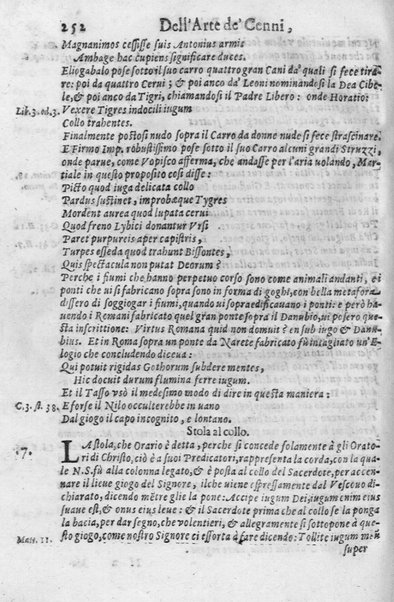 252 Dell'Arte de' Cenni,
Magnanimos cessisse suis Antonius armis
Ambage hac cupiens significare duces.
Eliogabalo pose sotto il suo carro quattro gran Cani da' quali si fece tira-
re: poi da quattro Cerui; & poi anco da' Leoni nominandosi la Dea Cibe-
le, & poi anco da Tigri, chiamandosi il Padre Libero: onde Horatio
Lib. 3. od. 3. Vexere Tigres indocili iugum
Collo trahentes.
Finalmente postosi nudo sopra il Carro da donne nude si fece strascinare.
E Firmo Imp. robustissimo pose sotto il suo Carro alcuni grandi Struzzi,
onde parue, come Vopisco afferma, che andasse per l'aria uolando, Mar-
tiale in questo proposito cosi disse:
Picto quod iuga delicata collo
Pardus sustinet, improbaque Tygres
Mordent aurea quod lupata cerui
Quod freno Lybici donantur Vrsi
Paret purpureis aper capistris,
Turpes esseda quod trahunt Bissontes,
Quis spectacula non putat Deorum?
Perche i fiumi che hanno perpetuo corso sono come animali andanti, e i
ponti che ui si fabricano sopra sono in forma di goghi, con bella metafora
dissero di soggiogar i fiumi, quando ui sopraedificauano i ponti: e però ha-
uendo i Romani fabricato quel gran ponte sopra il Danubio, ui posero que-
sta inscrittione: Virtus Romana quid non domuit? en sub iugo & Danu-
bius. Et in Roma sopra un ponte da Narete fabricato fù intagliato un' E-
logio che concludendo diceua:
Qui potuit rigidas Gothorum subdere mentes,
Hic docuit durum flumina ferre iugum.
Et il Tasso vsò il medesimo modo di dire in questa maniera:
C. 3. st. 38. E forse il Nilo occulterebbe in uano
Dal giogo il capo incognito, e lontano.
Stola al collo.
7. LA stola, che Orario è detta, perche si concede solamente à gli Orato-
ri di Christo, ciò è a suoi Predicatori, rappresenta la corda, con la qua
le N.S. fù alla colonna legato, & è posta al collo del Sacerdote, per accen-
nare il lieue giogo del Signore, ilche uiene espressamente dal Vescouo di-
chiarato, dicendo mẽtre glie la pone: Accipe iugum Dei, iugum enim eius
suaue est, & onus eius leue: & il Sacerdote prima che al collo se la ponga
la bacia, per dar segno, che volentieri, & allegramente si sottopone à que-
Matt. 11. sto giogo, come nostro Signore ci essorta à fare dicendo: Tollite iugum meum
super